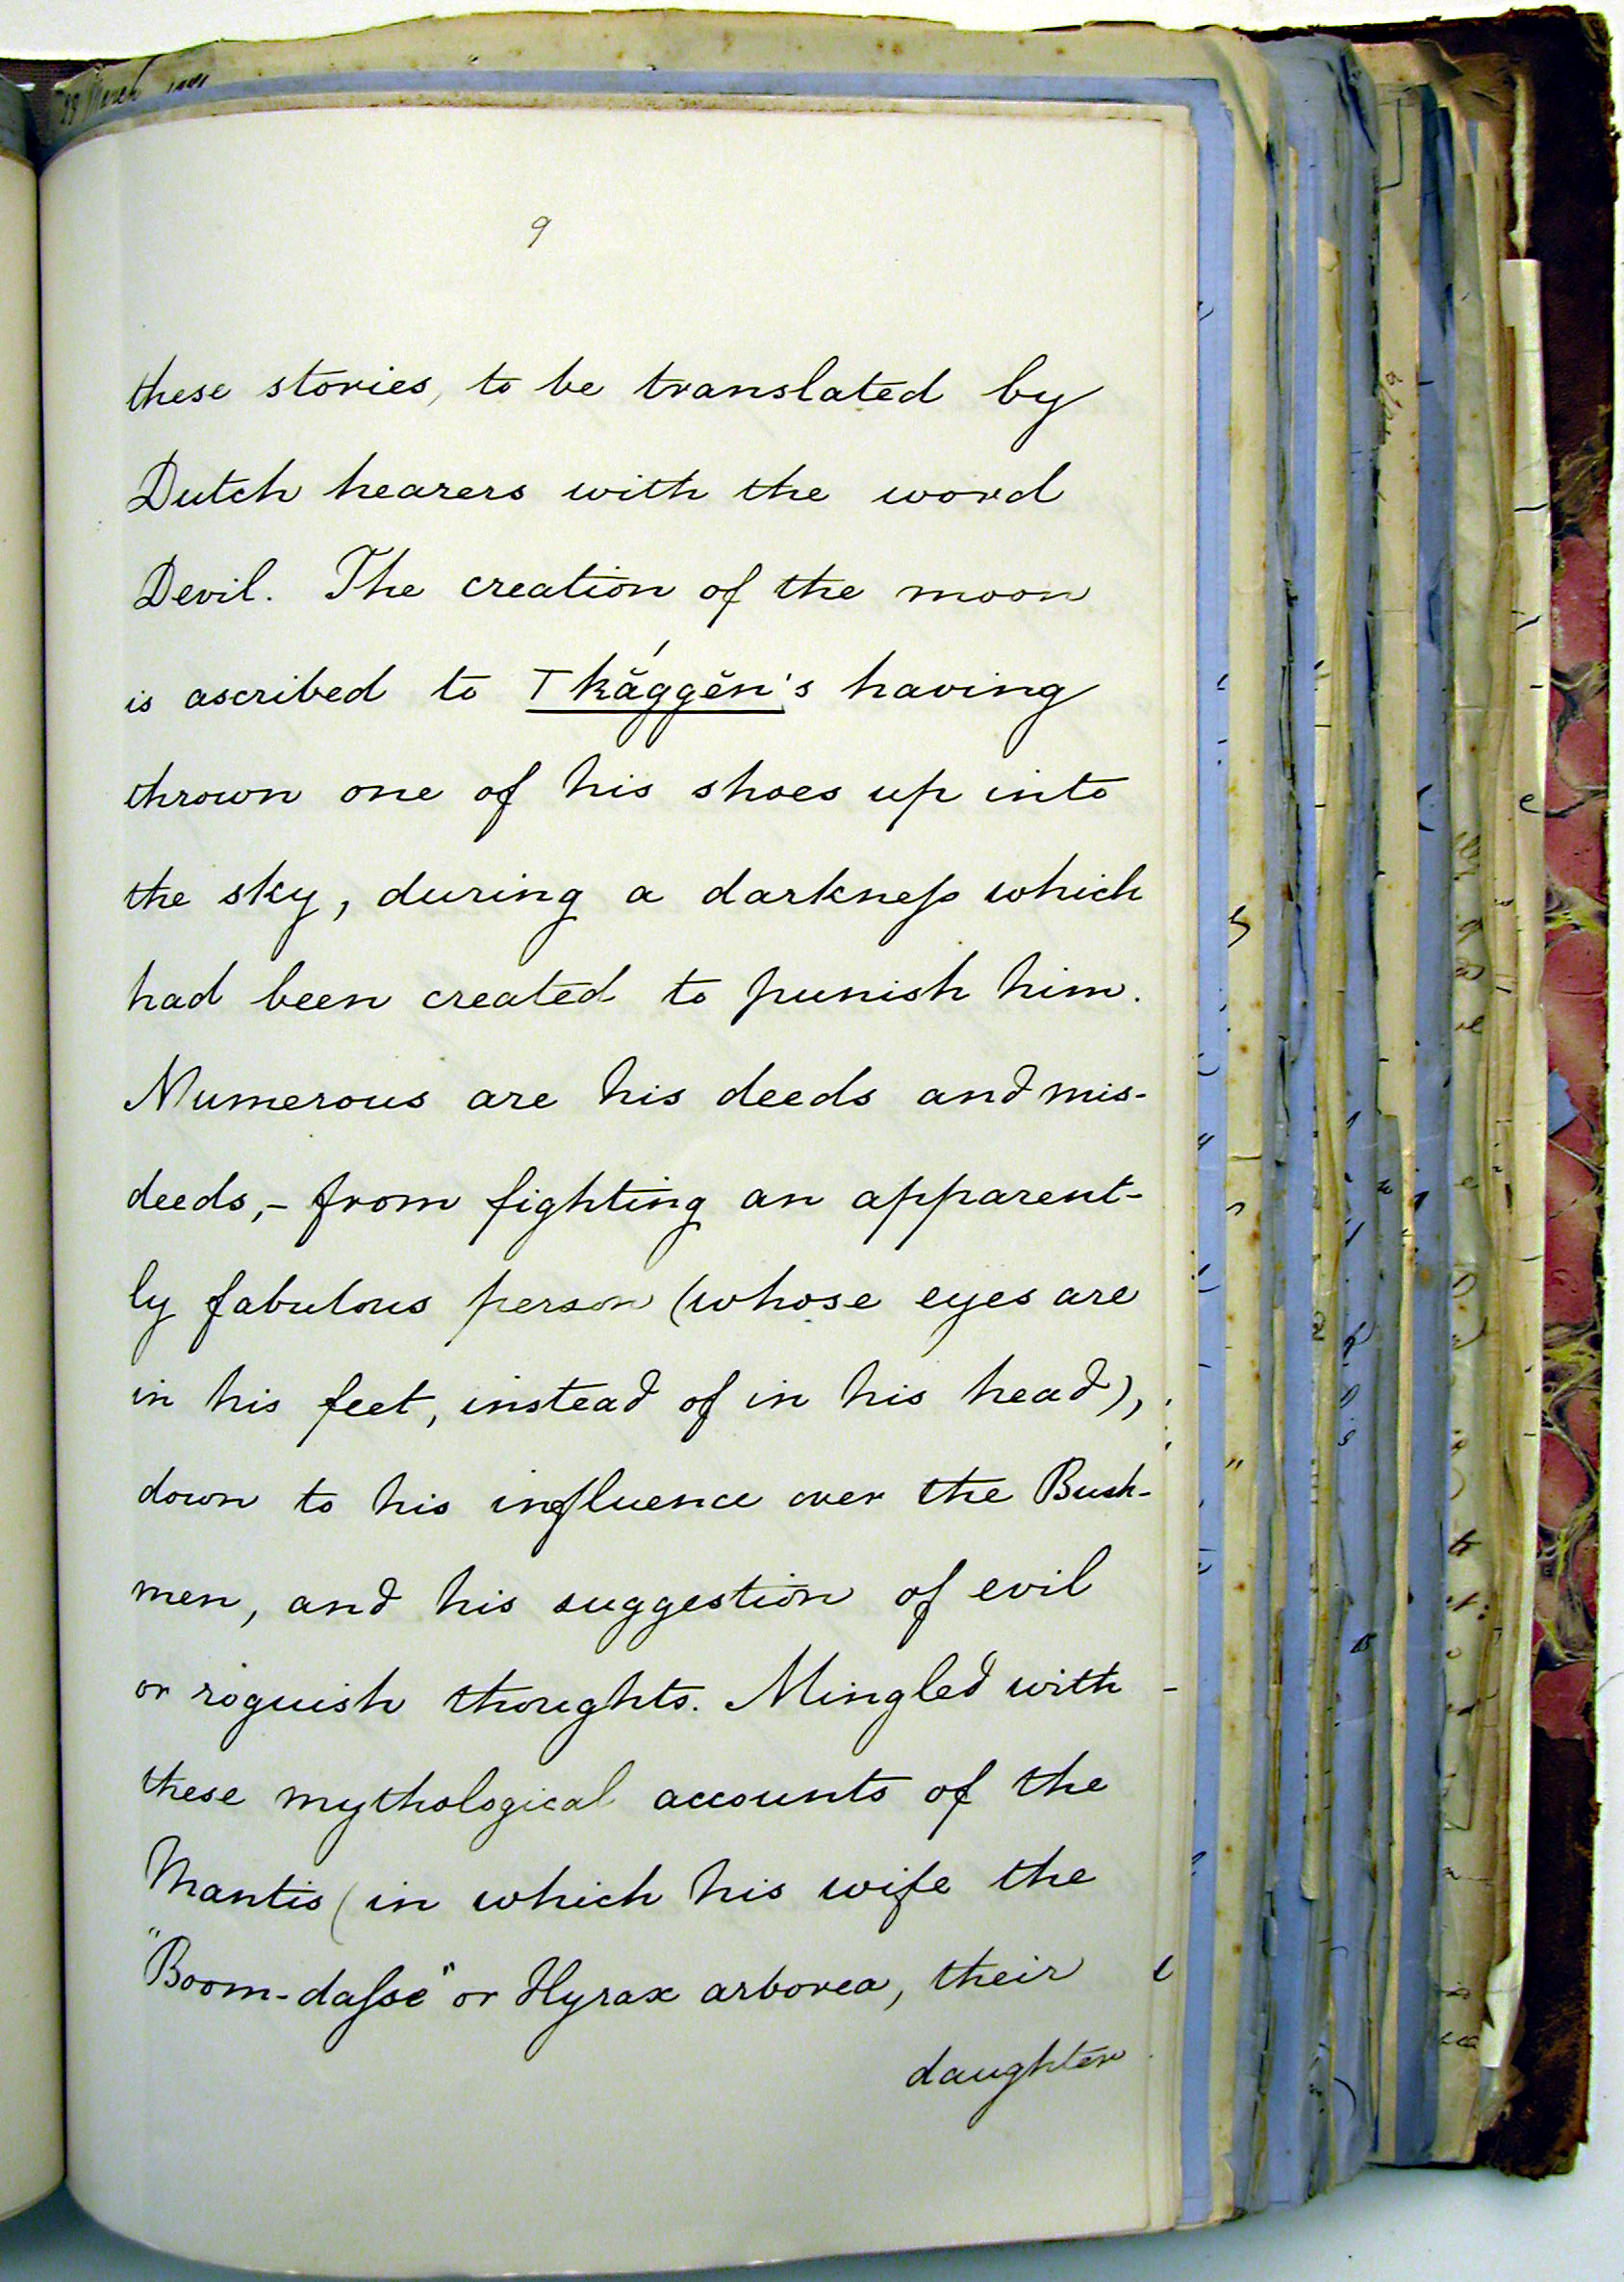 29 March
9
these stories, to be translated by
Dutch hearers with the word
Devil. The creation of the moon
is ascribed to Tkắggĕn's having
thrown one of his shoes up into
the sky, during a darkneſs which
had been created to punish him.
Numerous are his deeds and mis-
deeds,- from fighting an apparent-
ly fabulous person (whose eyes are
in his feet, instead of in his head),
down to his influence over the Bush-
men, and his suggestion of evil
or roguish thoughts. Mingled with
these mythological accounts of the
Mantis (in which his wife the
"Boom-daſse" or Hyrax arborea, their
daughter